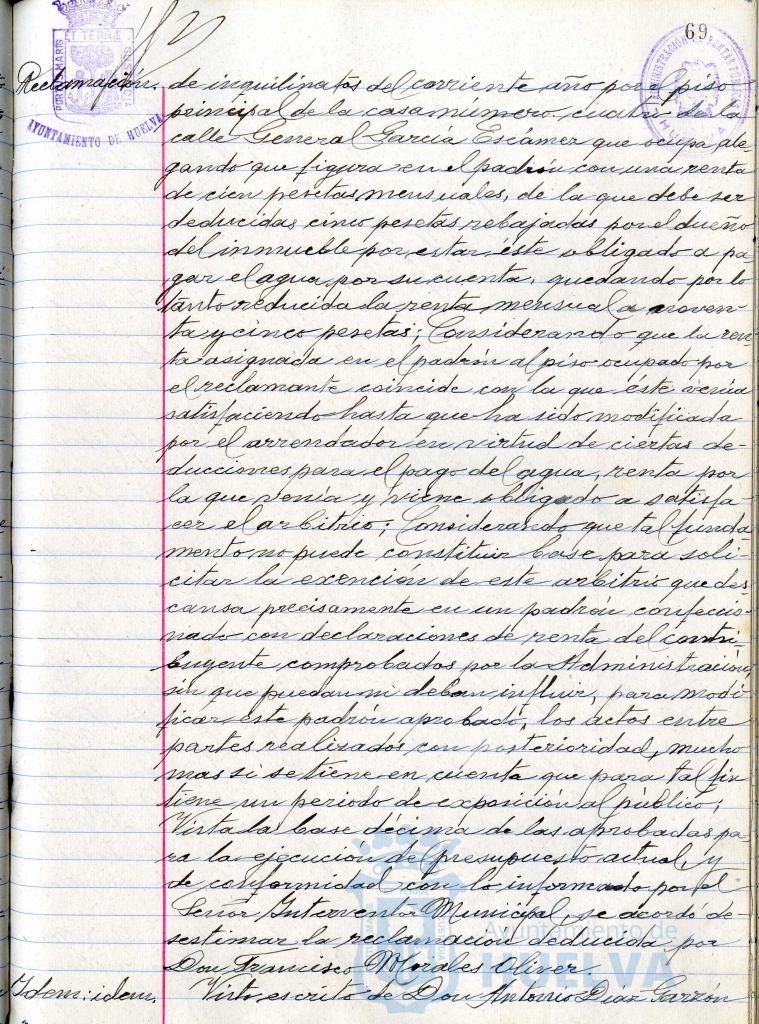 69.
ET TERRÆ
AYUNTAMIENTO DE HUELVA
HUELVA
Reclamación. de inquilinatos del corriente año por el piso
principal de la casa número cuatro de la
calle General García Escámez que ocupa ale-
gando que figura en el padrón con una renta
de cien pesetas mensuales, de la que debe ser
deducidas cinco pesetas rebajadas por el dueño
del inmueble por estar éste obligado a pa-
gar el agua por su cuenta, quedando por lo
tanto reducida la renta mensual a noven-
ta y cinco pesetas; Considerando que la ren-
ta asignada en el padrón al piso ocupado por
el reclamante coincide con la que éste venía
satisfaciendo hasta que ha sido modificada
por el arrendador en virtud de ciertas de-
ducciones para el pago del agua, renta por
la que venía y viene obligado a satisfa-
cer el arbitrio; Considerando que tal funda-
mento no puede constituir base para soli-
citar la exención de este arbitrio que des-
cansa precisamente en un padrón confeccio-
nado con declaraciones de renta del contri-
buyente comprobados por la Administración,
sin que puedan ni deban influir, para modi-
ficar este padrón aprobado, los actos entre
partes realizados con posterioridad, mucho
mas si se tiene en cuenta que para tal fin
tiene un periodo de exposición al público;
Vista la base décima de las aprobadas pa-
ra la ejecución del presupuesto actual, y
de conformidad con lo informado por el
Señor Interventor Municipal, se acordó de-
sestimar la reclamación deducida por
Don Francisco Morales Oliver.
Idem: idem. Visto escrito de Don Antonio Díaz Garzón
Ayuntamiento de
HUELVA